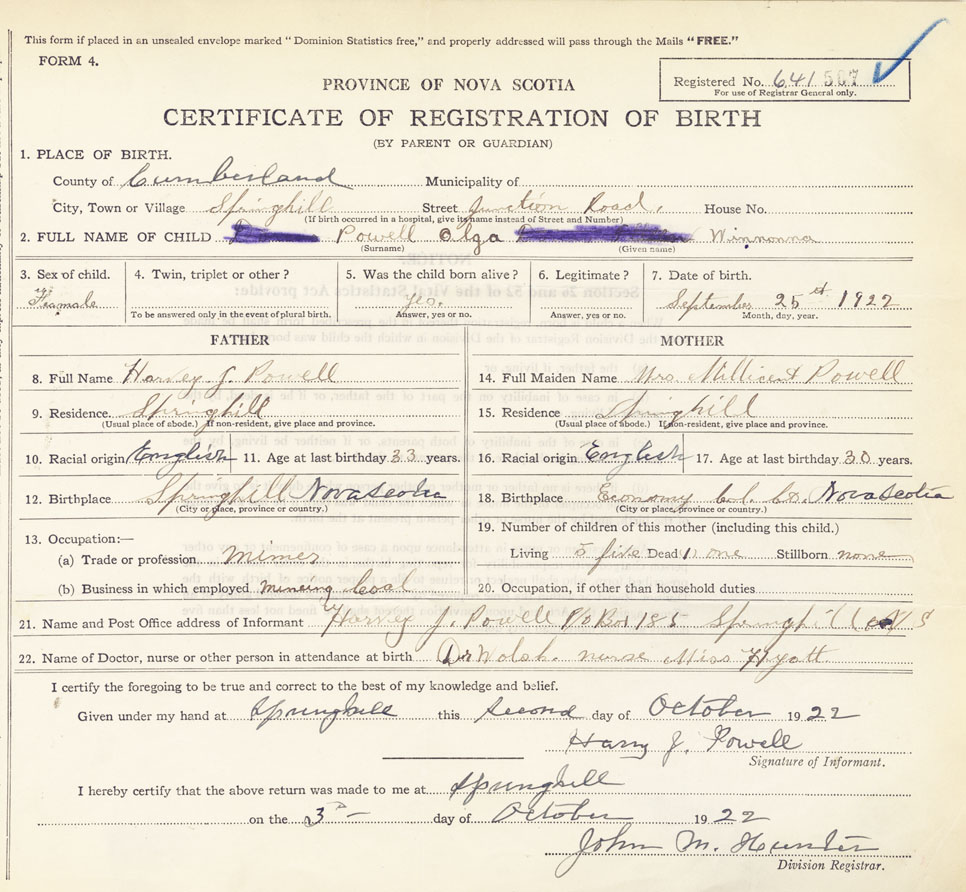 This form if placed in an unsealed envelope marked "Dominion Statistics free," and properly addressed will pass through the Mails "FREE."
FORM 4.
Registered No. 641 507
For use of Registrar General only.
PROVINCE OF NOVA SCOTIA
CERTIFICATE OF REGISTRATION OF BIRTH
(BY PARENT OR GUARDIAN)
1. PLACE OF BIRTH.
County of Cumberland Municipality of
City, Town or Village Springhill Street Junction Road. House No.
(If birth occurred in a hospital, give its name instead of Street and Number)
2. FULL NAME OF CHILD Powell Olga Winnonna
(Surname) (Given name)
3. Sex of child. 4. Twin, triplet or other? 5. Was the child born alive? 6. Legitimate? 7. Date of birth.
Feamale yes. September 25st 1922
To be answered only in the event of plural birth. Answer, yes or no. Answer, yes or no. Month, day, year.
FATHER MOTHER
8. Full Name Harvey J. Powell 14. Full Maiden Name Mrs Millicent Powell
9. Residence. Springhill 15. Residence Springhill
(Usual place of abode.) If non-resident, give place and province. (Usual place of abode.) If non-resident, give place and province.
10. Racial origin English 11. Age at last birthday 33 years. 16. Racial origin English 17. Age at last birthday 30 years.
12. Birthplace Springhill Nova Scotia 18. Birthplace Economy Col. Co. Nova Scotia
(City or place, province or country.) (City or place, province or country.)
19. Number of children of this mother (including this child.)
13. Occupation:—
(a) Trade or profession Mimer Living 5 five Dead 1 one Stillborn none
(b) Business in which employed mineing Coal 20. Occupation, if other than household duties
21. Name and Post Office address of Informant Harvey J. Powell PO Box 185 Springhill NS
22. Name of Doctor, nurse or other person in attendance at birth Dr Walsh. nurse Miss Hyatt
I certify the foregoing to be true and correct to the best of my knowledge and belief.
Given under my hand at Springhill this Second day of October 1922
Harvey J. Powell
Signature of Informant.
I hereby certify that the above return was made to me at Springhill
on the 3rd day of October 1922
John M. Hunter
Division Registrar.